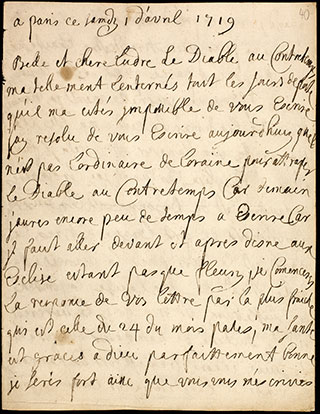 40
a paris ce samdy 1 d'avril 1719
Belle et chere Ludre Le Diable au Contretemps
ma tellement Lenternés tout les jours de poste
qu'il ma estés imposible de vous Escrire
jay resolu de vous Escrire aujourdhuy que
nest pas Lordinaire de Loraine pour atraper
le Diable au Contretemps Car demain
jaures encore peu de temps a Escrire Car
il faut aller devant et apres disne aux
Eglise estant pasque fleury, je Comences
La reponse de vos lettre par la plus fraiche
qui est celle du 24 du mois pases; ma santé
est graces a dieu parfaittement bonne
je serés fort aise que vous m'escrivies